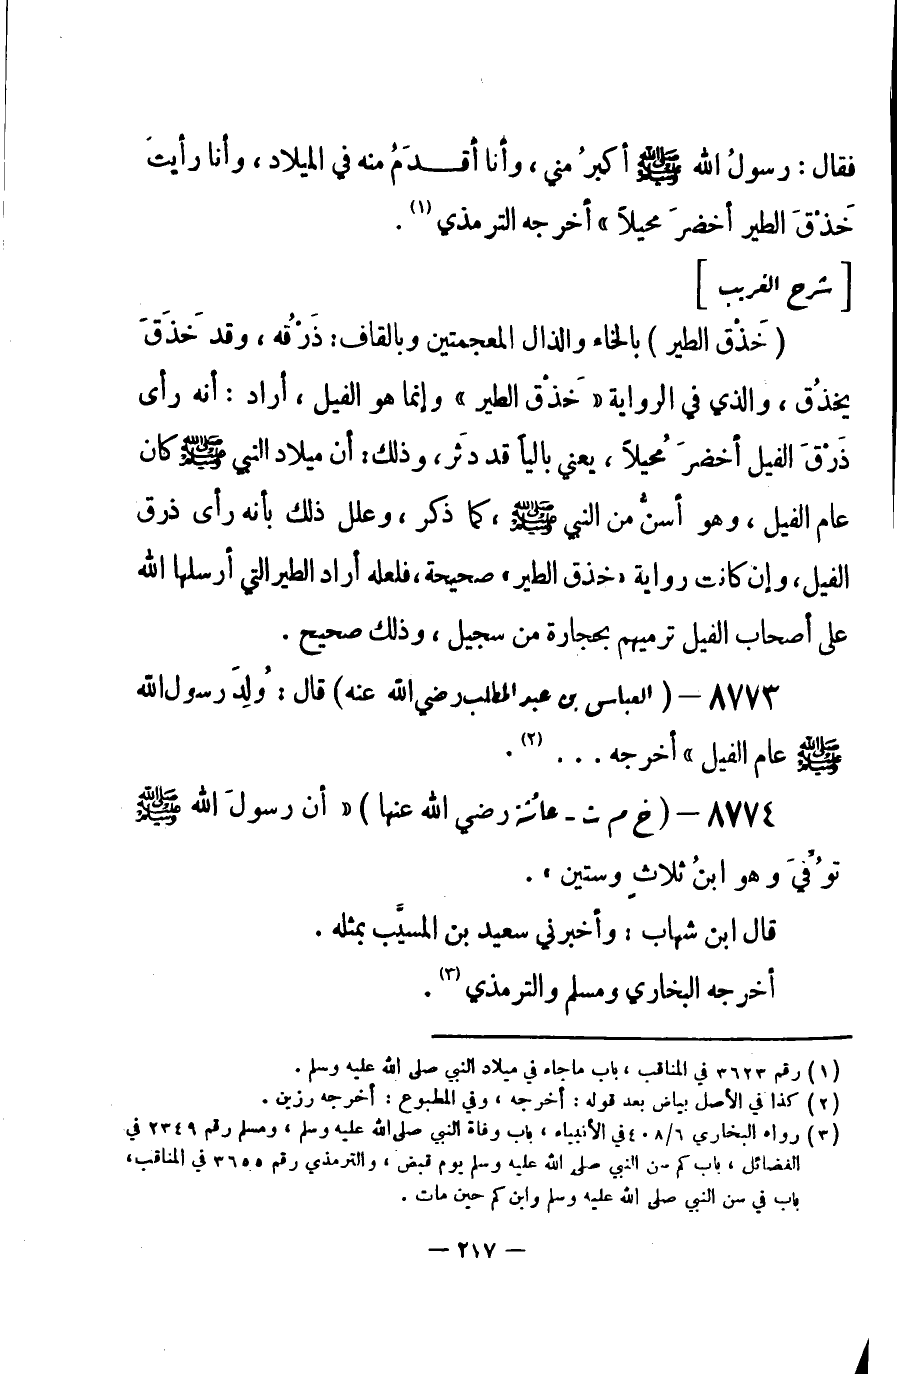 فقال : رسولُ الله ﷺ أكبرُ مني ، وأنا أقـدَمُ منه في الميلاد ، وأنا رأيتَ
خَذْقَ الطير أخضرَ محيلاً » أخرجه الترمذي (١) .
[ شرح الغريب ]
( خَذْق الطير ) بالخاء والذال المعجمتين وبالقاف: ذَرْقُه ، وقد خَذَقَ
يخذُق ، والذي في الرواية « خَذْق الطير » وإنما هو الفيل ، أراد : أنه رأى
ذَرْقَ الفيل أخضرَ مُحيلاً ، يعني بالياً قد دَثر، وذلك: أن ميلاد النبي ﷺ كان
عام الفيل ، وهو أسنُّ من النبي ﷺ ، كما ذكر ، وعلل ذلك بأنه رأى ذرق
الفيل، وإن كانت رواية «خذق الطير» صحيحة، فلعله أراد الطير التي أرسلها الله
على أصحاب الفيل ترميهم بحجارة من سجيل ، وذلك صحيح .
٨٧٧٣ – ( العباس بن عبد المطلب رضي الله عنه ) قال : وُلِدَ رسول الله
ﷺ عام الفيل » أخرجه . . . (٢) .
٨٧٧٤ – ( خ م ت - عائشة رضي الله عنها ) « أن رسولَ الله ﷺ
توُفِّيَ وهو ابنُ ثلاثٍ وستين » .
قال ابن شهاب : وأخبرني سعيد بن المسيَّب بمثله .
أخرجه البخاري ومسلم والترمذي (٣) .
(١) رقم ٣٦٢٣ في المناقب ، باب ماجاء في ميلاد النبي صلى الله عليه وسلم .
(٢) كذا في الأصل بياض بعد قوله : أخرجه ، وفي المطبوع : أخرجه رزين .
(٣) رواه البخاري ٤٠٨/٦ في الأنبياء ، باب وفاة النبي صلى الله عليه وسلم ، ومسلم رقم ٢٣٤٩ في
الفضائل ، باب كم سن النبي صلى الله عليه وسلم يوم قبض ، والترمذي رقم ٣٦٥٥ في المناقب،
باب في سن النبي صلى الله عليه وسلم وابن كم حين مات .
– ٢١٧ –